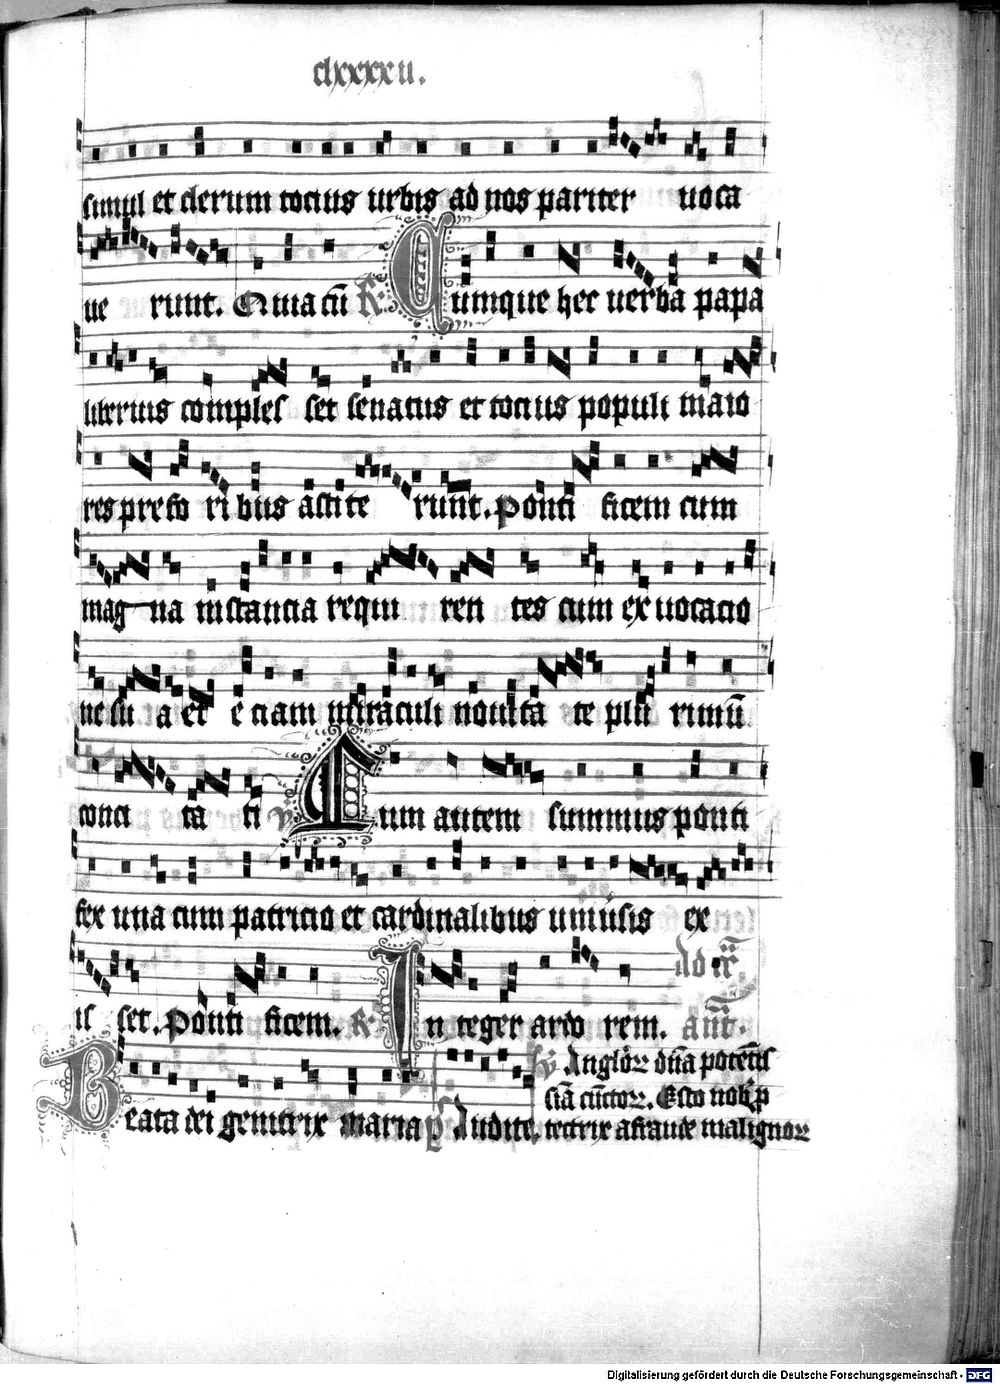 clxxxxii.
simul et clerum tocius urbis ad nos pariter uoca
ue runt. Quia cū R. Cumque hec uerba papa
liberius comples set senatus et tocius populi maio
res prefo ribus astite runt. Ponti ficem cum
mag na instancia requi ren tes cum ex uocacio
ne su a et e ciam miraculi nouita te plu rimū
conci ta ti V. Cum autem summus ponti
fex una cum patricio et cardinalibus uniūsis ex
is set. Ponti ficem. R. In teger ardo rem. Ad
Beata dei genitrix maria Audite. Anglor dn̄a potētis
sīa cūctor. Esto nob
tectrix a fraude malignor
Digitalisierung gefördert durch die Deutsche Forschungsgemeinschaft - DFG